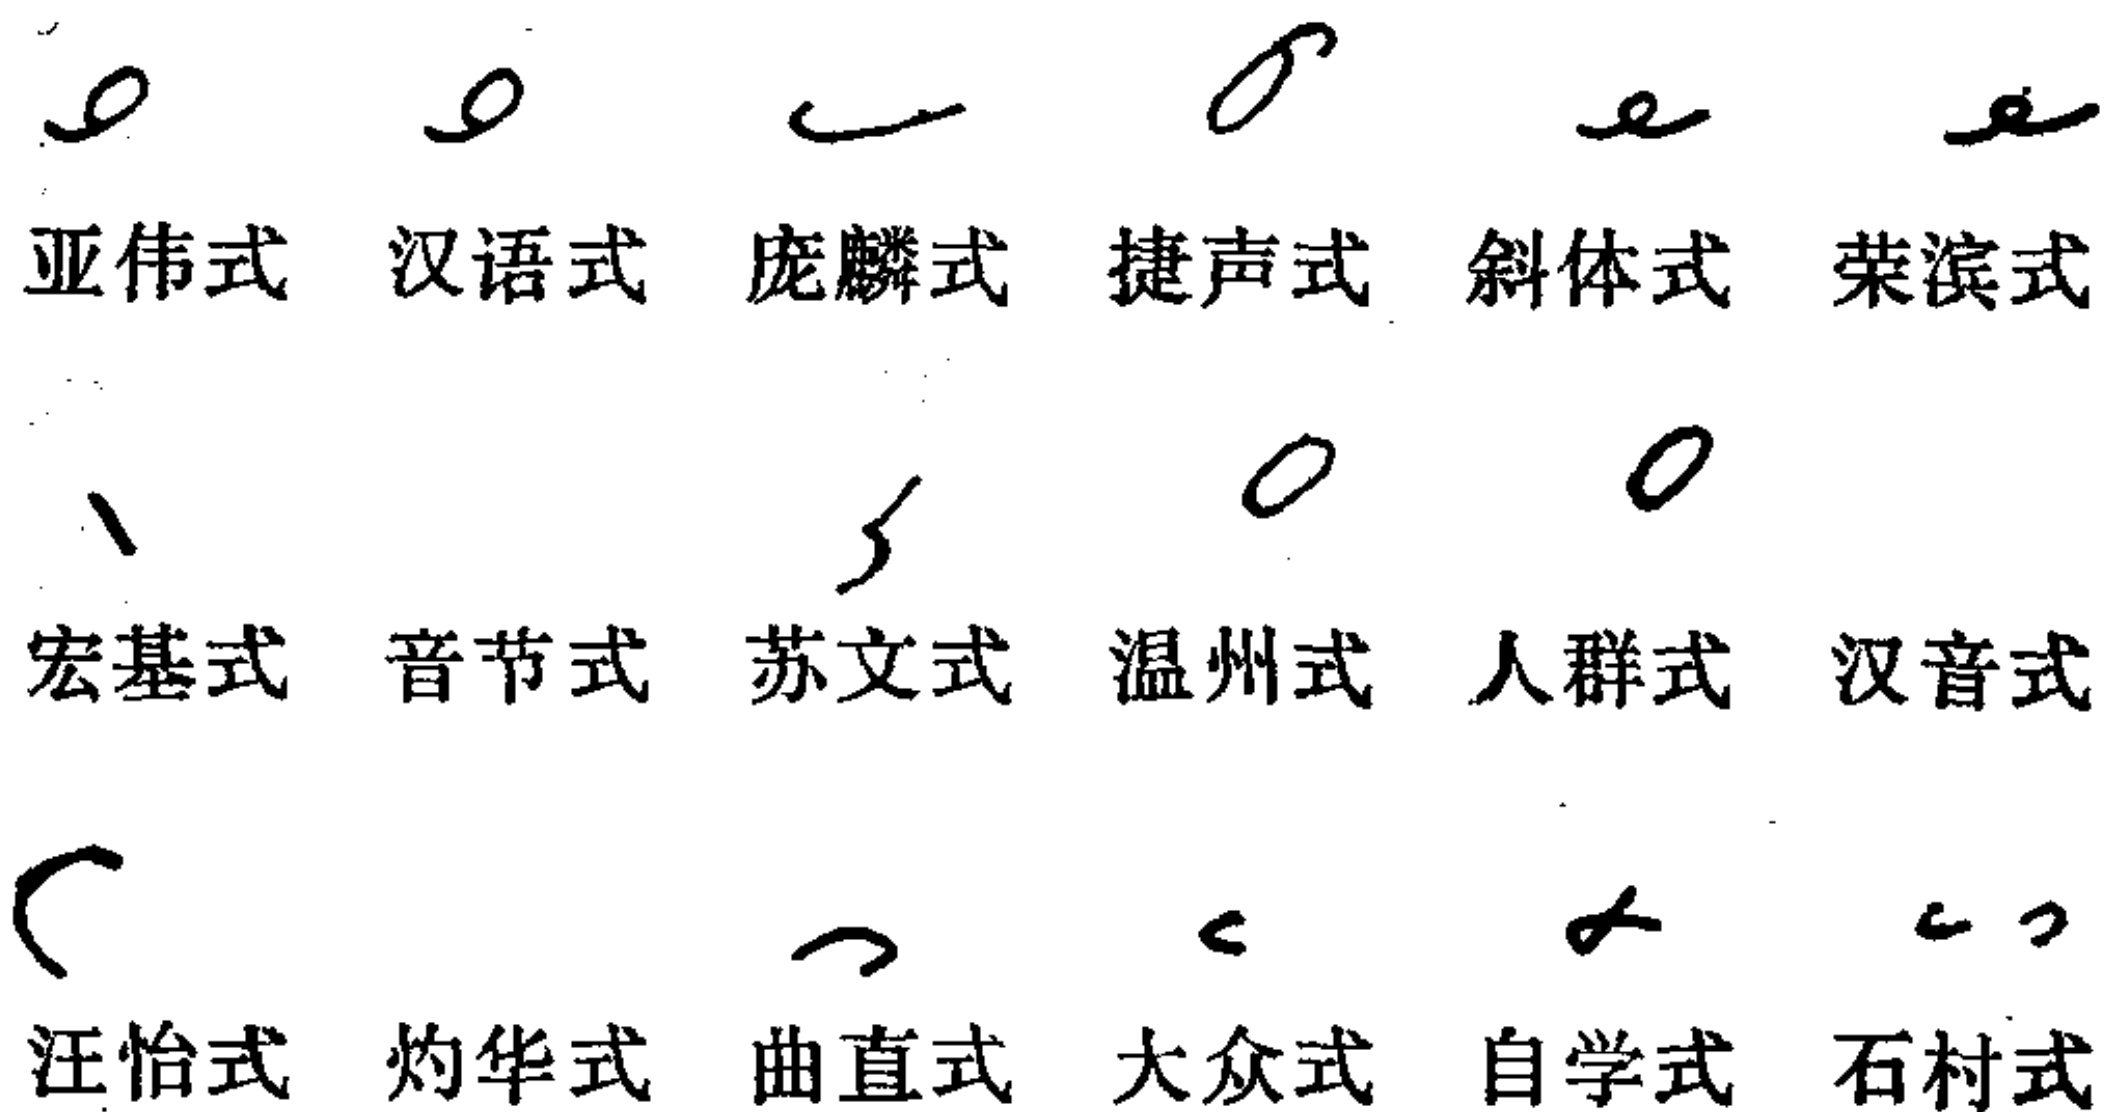 亚伟式 汉语式 庞麟式 捷声式 斜体式 荣滨式
宏基式 音节式 苏文式 温州式 人群式 汉音式
汪怡式 灼华式 曲直式 大众式 自学式 石村式